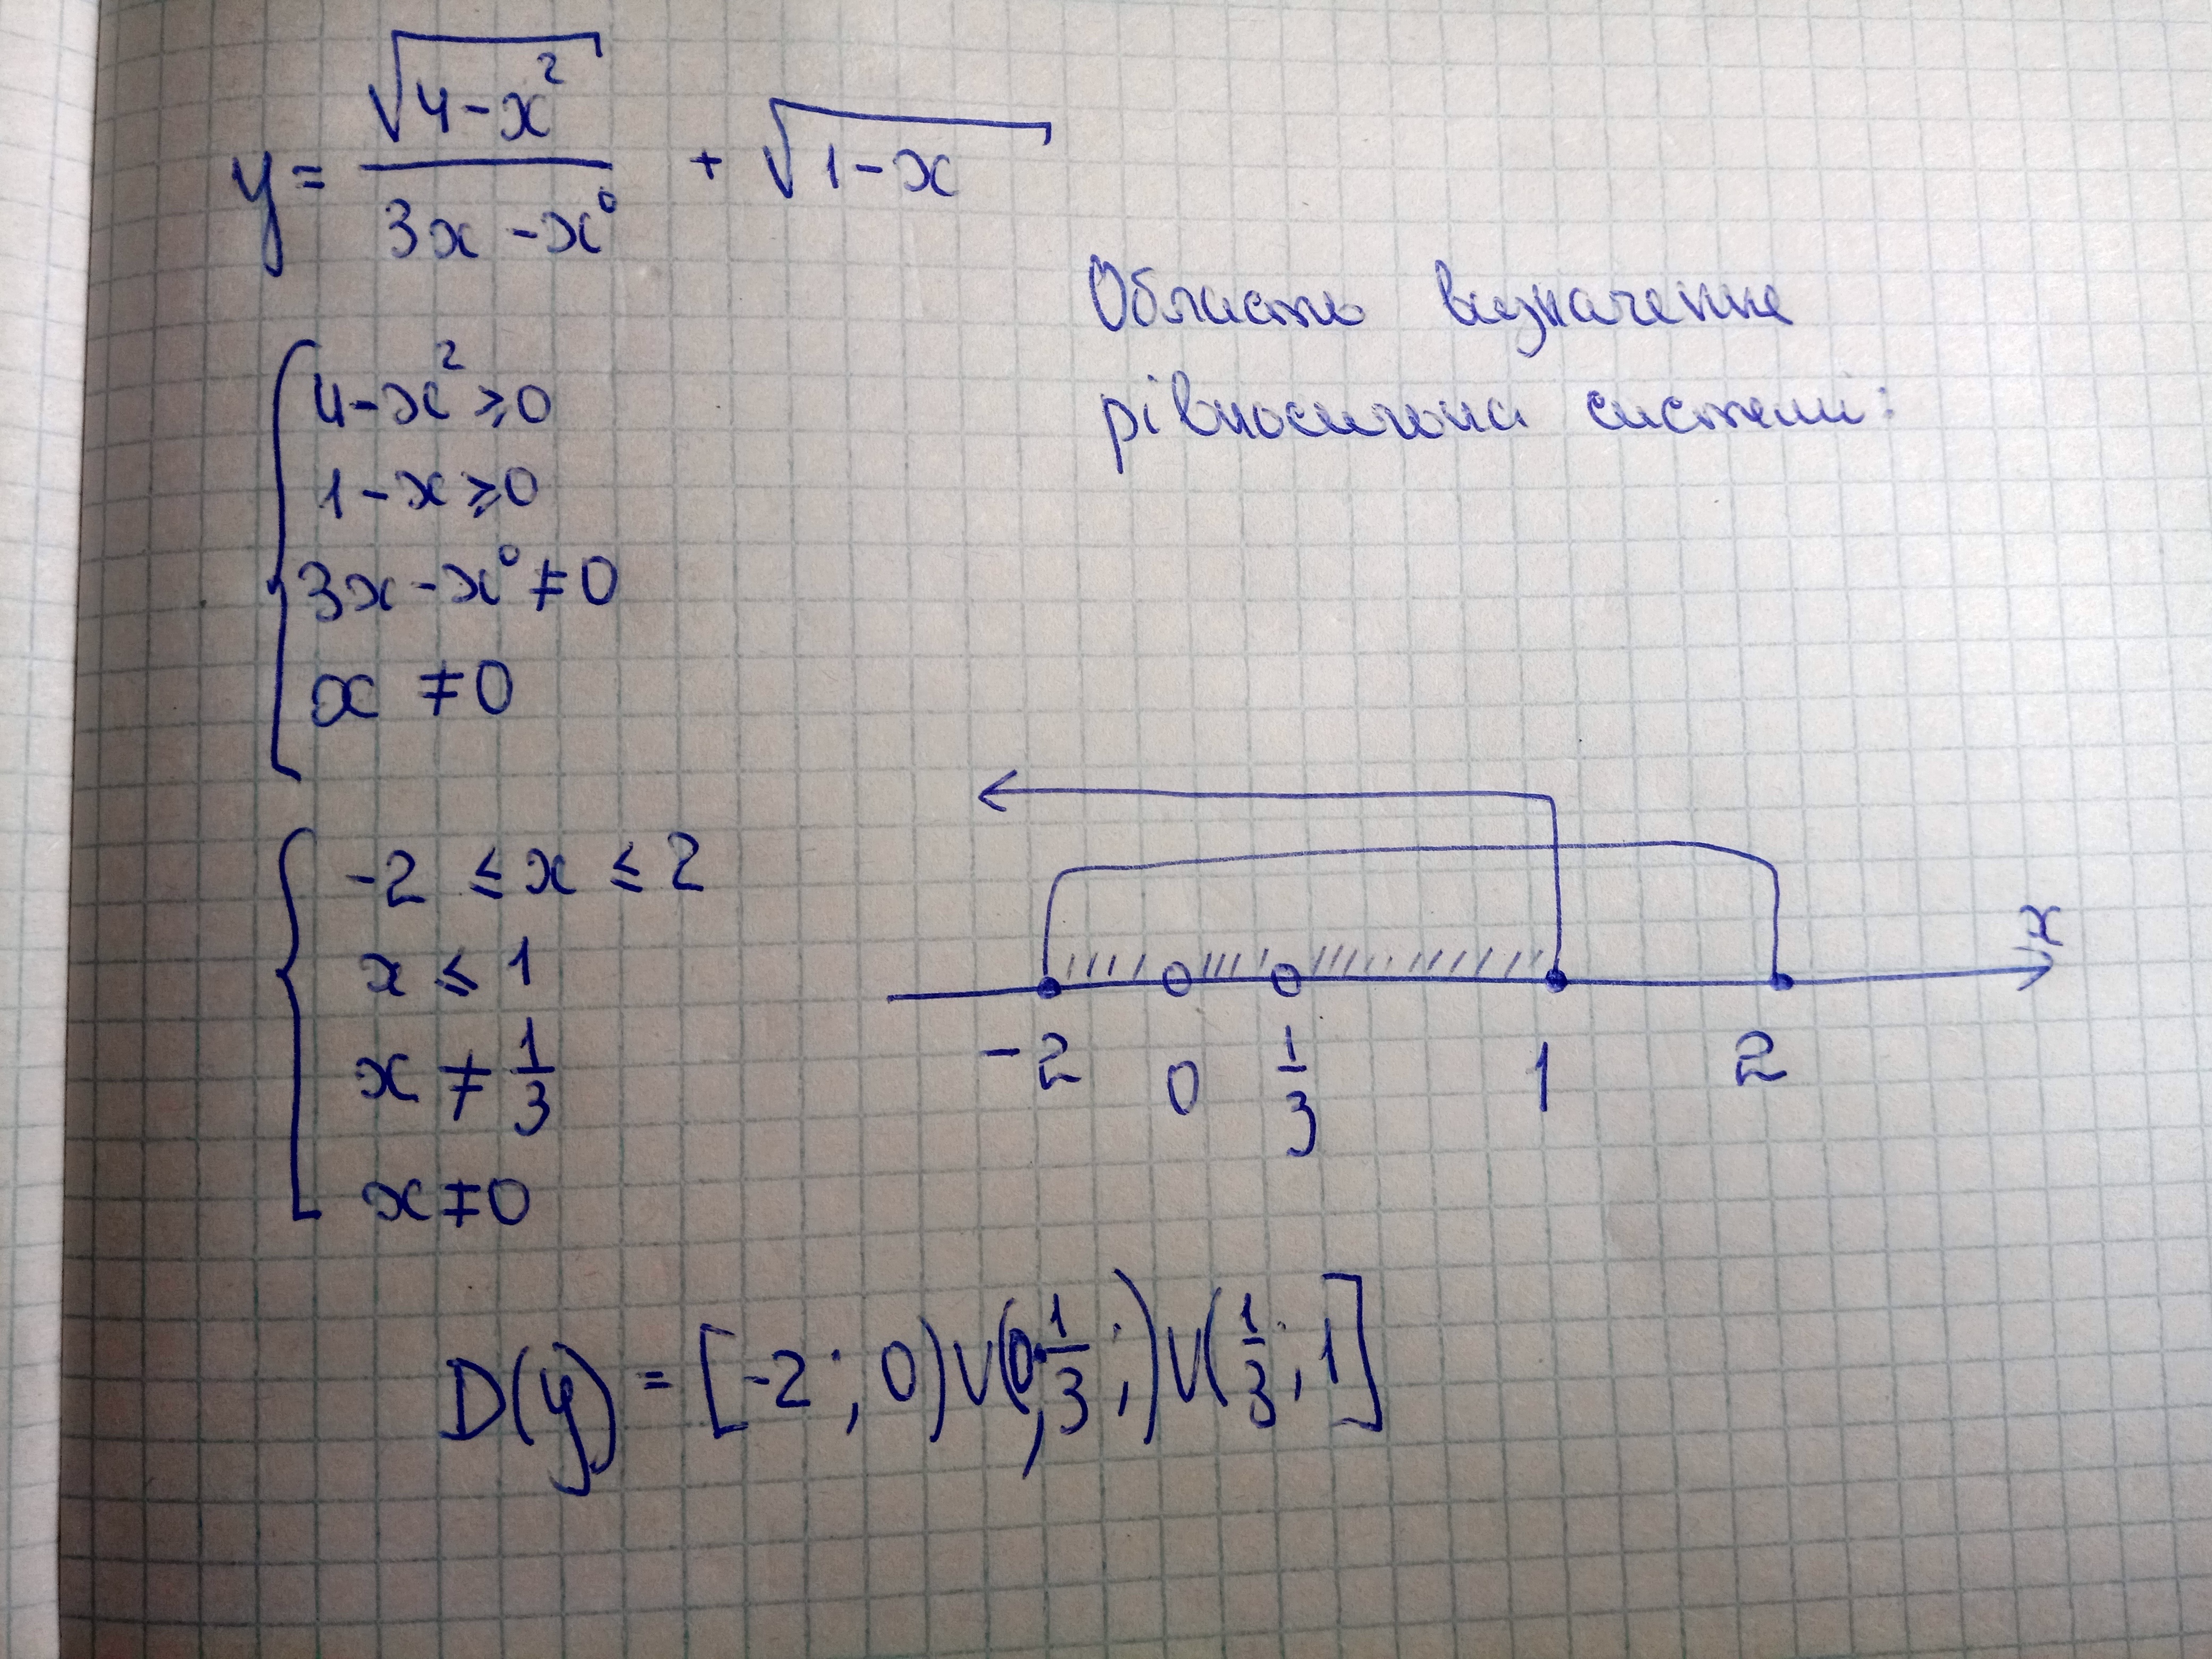 y = \frac{\sqrt{4-x^2}}{3x-x^0} + \sqrt{1-x}
Область визначення
рівносильна системі:
4-x^2 ≥ 0
1-x ≥ 0
3x-x^0 ≠ 0
x ≠ 0
-2 ≤ x ≤ 2
x ≤ 1
x ≠ \frac{1}{3}
x ≠ 0
x
-2 0 \frac{1}{3} 1 2
D(y) = [-2; 0) ∪ (0; \frac{1}{3};) ∪ (\frac{1}{3}; 1]